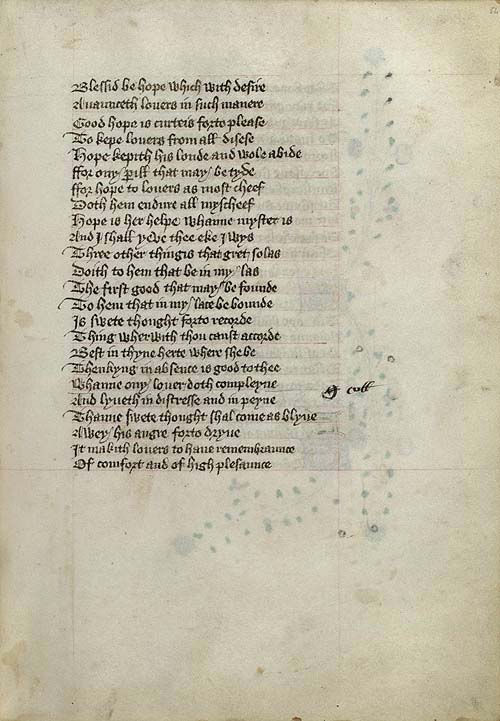 Blessid be hope which with desire
Auaunceth louers in such manere
Good hope is curteis forto please
To kepe louers from all disese
Hope kepith his londe and wole abide
ffor ony pill that may be tyde
ffor hope to louers as most cheef
Doth hem endure all myscheef
Hope is her helpe whanne myster is
And I shall yeve thee eke I wys
Three other thingis that gret solas
Doith to hem that be in my las
The first good that may be founde
To hem that in my lace be bounde
Is swete thought forto recorde
Thing wher with thou canst accorde
Best in thyne herte where she be
Thenkyng in absence is good to thee
Whanne ony louer doth compleyne
And lyueth in distresse and in peyne
Thanne swete thought shal come as blyue
Awey his angre forto dryue
It makith louers to haue remembraunce
Of comfort and of high plesaunce